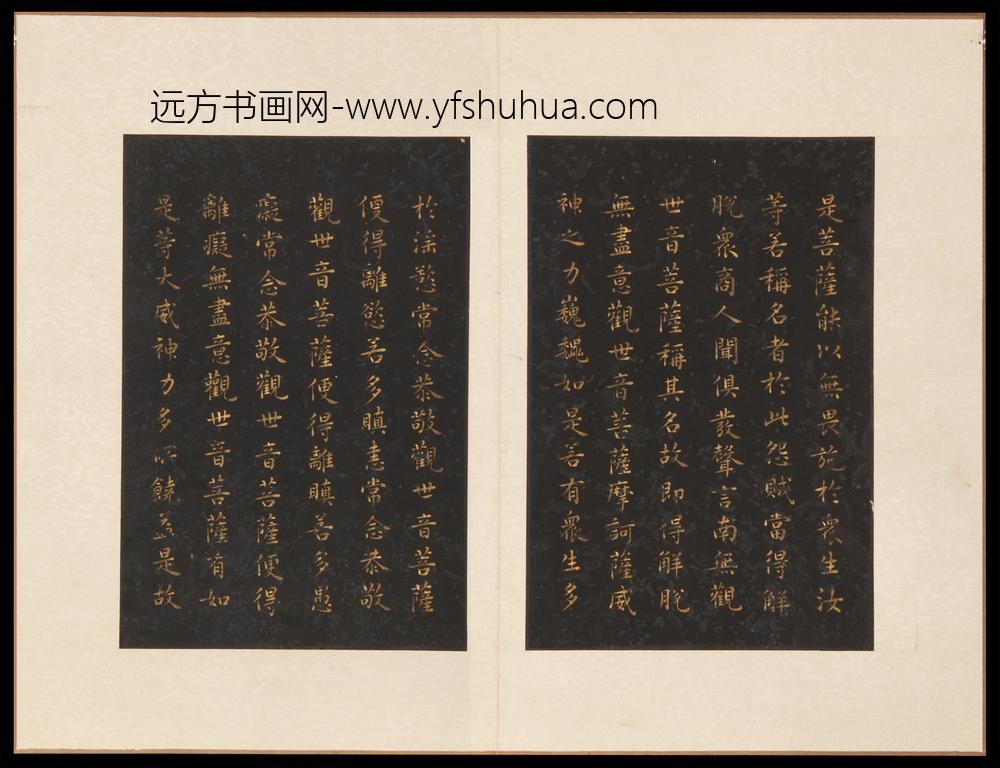 远方书画网-www.yfshuhua.com
是菩薩能以無畏施於衆生汝
等若稱名者於此怨賊當得解
脫衆商人聞俱發聲言南無觀
世音菩薩稱其名故即得解脫
無盡意觀世音菩薩摩訶薩威
神之力巍巍如是若有衆生多
於淫慾常念恭敬觀世音菩薩
便得離慾若多瞋恚常念恭敬
觀世音菩薩便得離瞋若多愚
癡常念恭敬觀世音菩薩便得
離癡無盡意觀世音菩薩有如
是等大威神力多所饒益是故